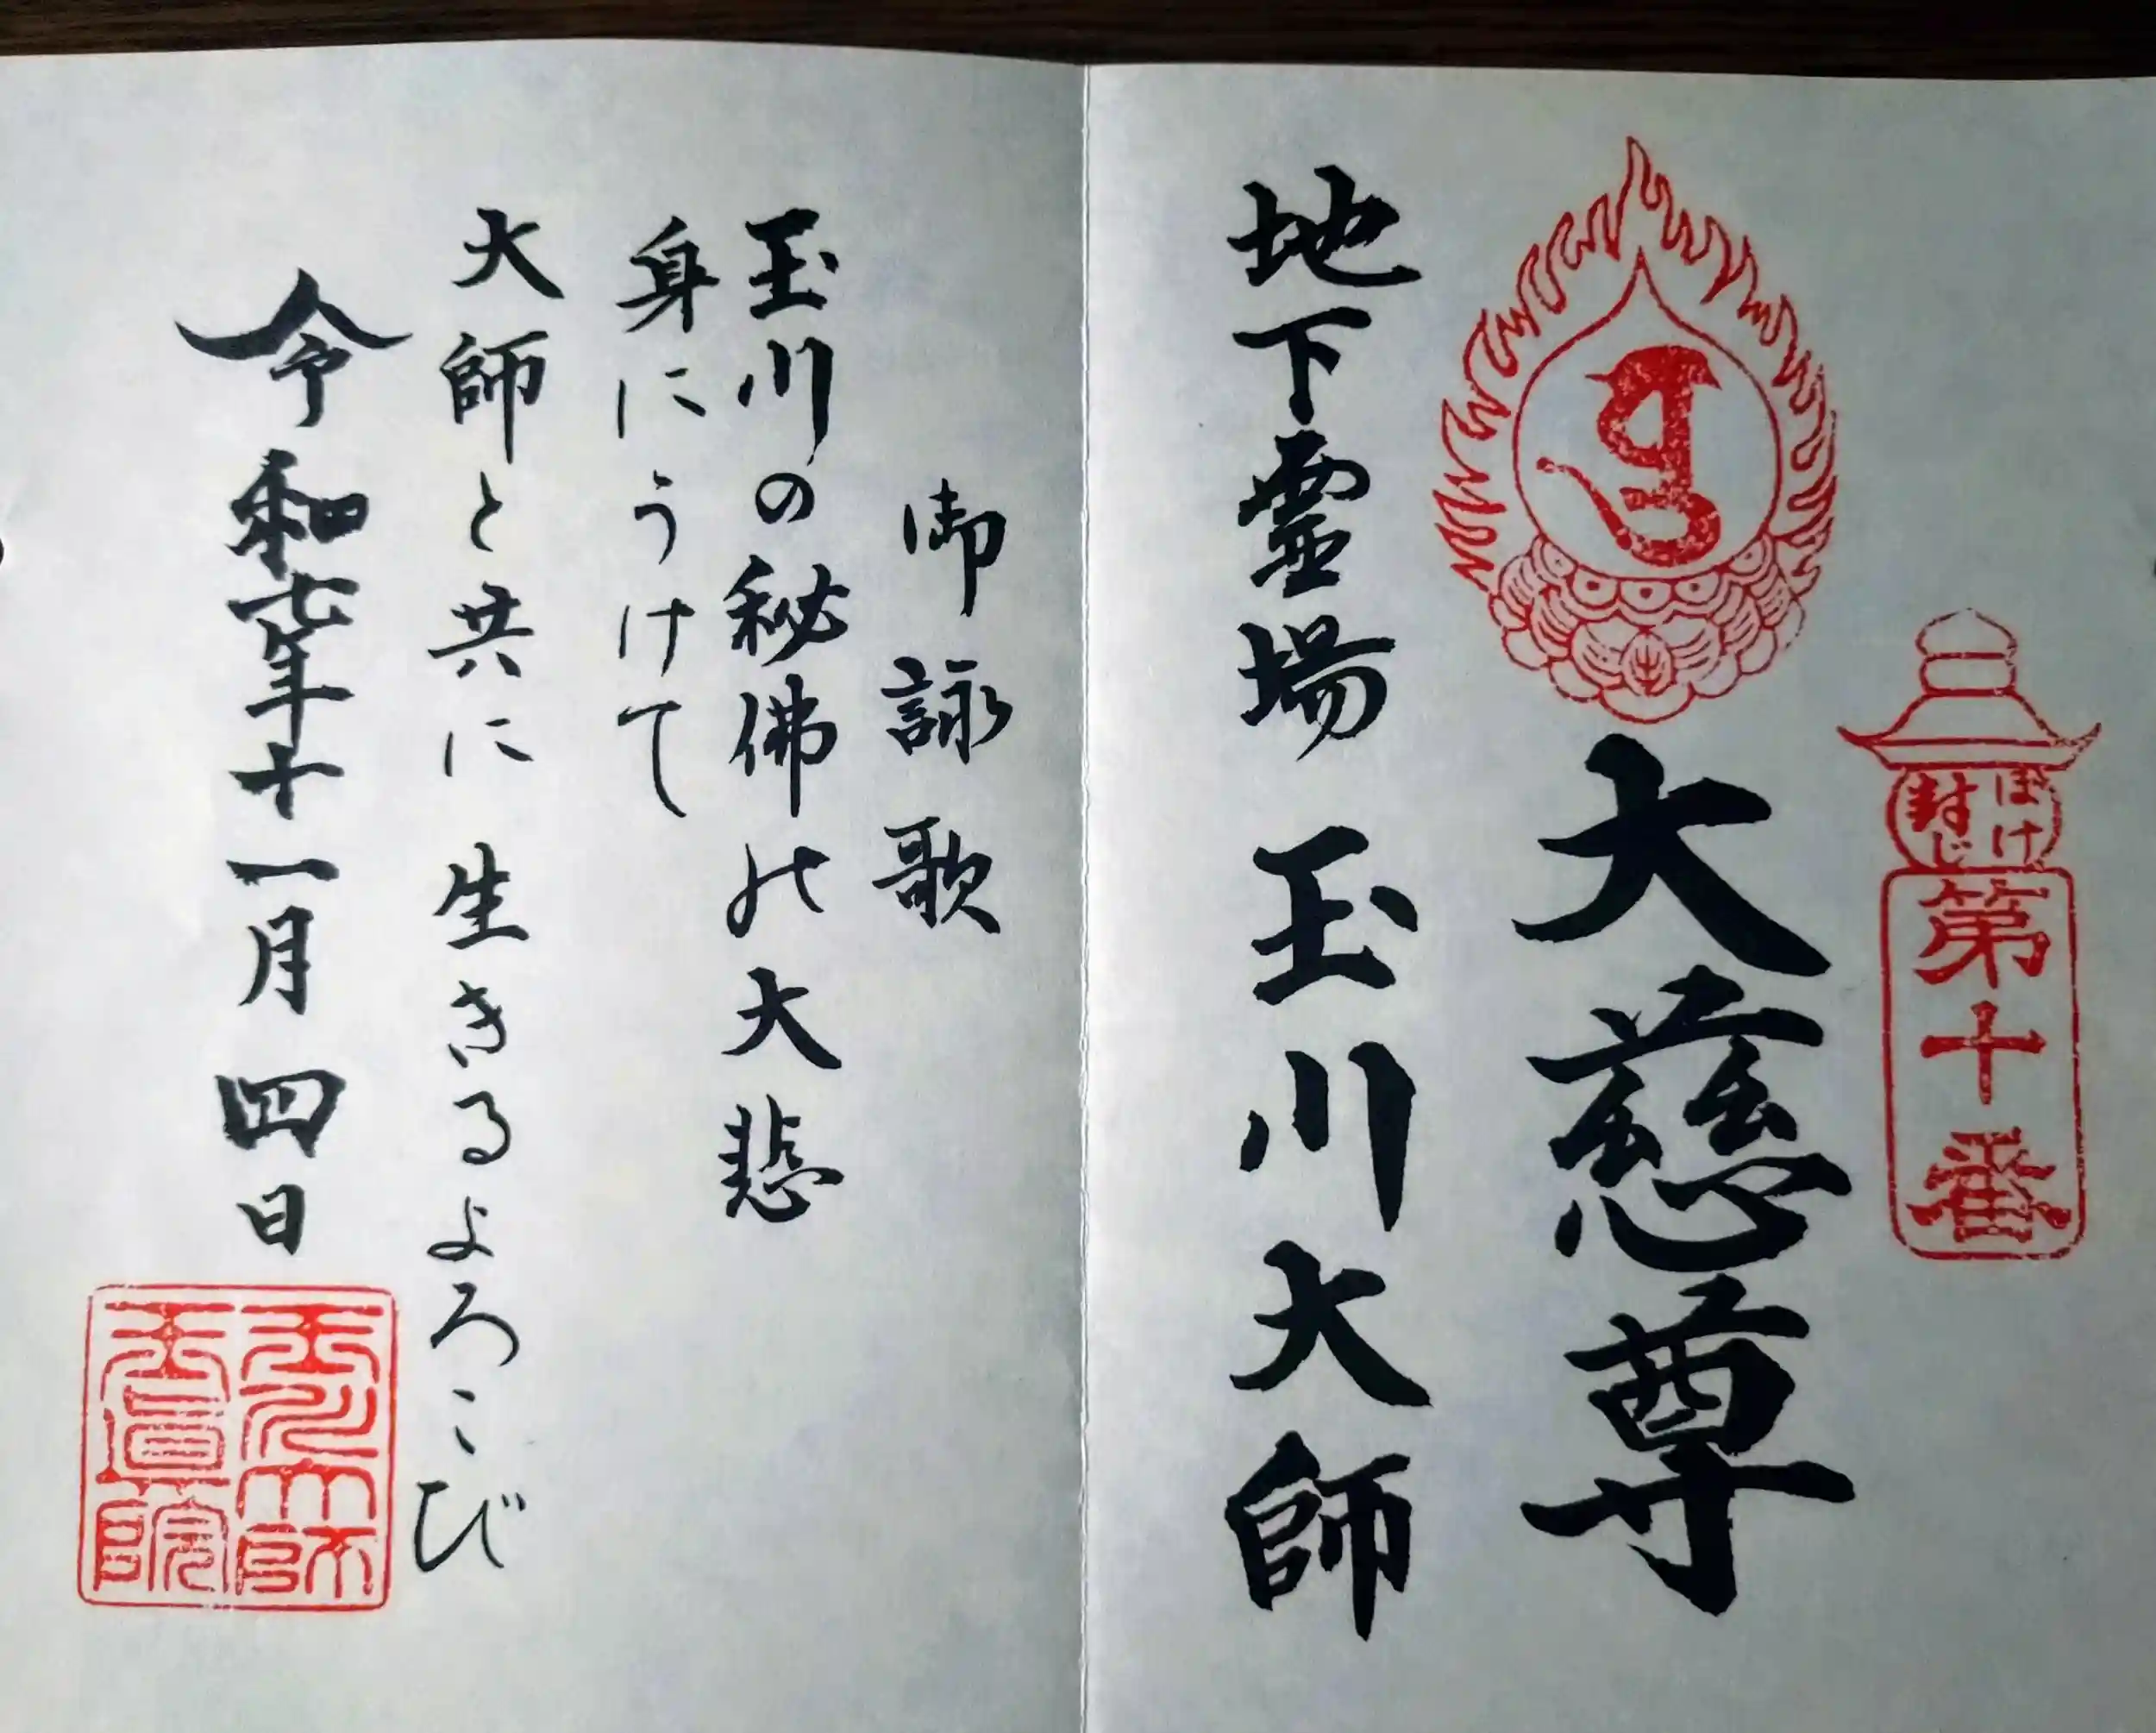 ぼけ
封じ
第十番
大慈尊
地下霊場 玉川大師
御詠歌
玉川の秘佛の大悲
身にうけて
大師と共に生きるよろこび
令和七年十一月四日